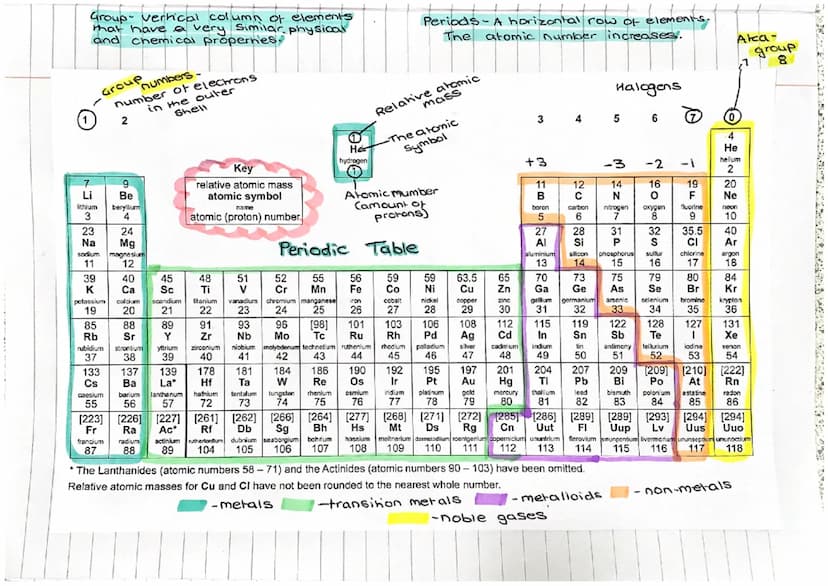 Group- Vertical column of elements
that have a very similar physical
and chemical properties.
Periods- A horizontal row of elements.
The atomic number increases.
AKA-
group
8
Group numbers-
number of electrons
in the outer
shell
Halogens
Relative atomic
mass
The atomic
symbol
Atomic number
(amount of
protons)
1
H
hydrogen
1
Key
relative atomic mass
atomic symbol
name
atomic (proton) number
Periodic Table
1 2 3 4 5 6 7 0
+3 -3 -2 -1
4
He
helium
2
7 9 11 12 14 16 19 20
Li Be B C N O F Ne
lithium beryllium boron carbon nitrogen oxygen fluorine neon
3 4 5 6 7 8 9 10
23 24 27 28 31 32 35.5 40
Na Mg Al Si P S Cl Ar
sodium magnesium aluminium silicon phosphorus sulfur chlorine argon
11 12 13 14 15 16 17 18
39 40 45 48 51 52 55 56 59 59 63.5 65 70 73 75 79 80 84
K Ca Sc Ti V Cr Mn Fe Co Ni Cu Zn Ga Ge As Se Br Kr
potassium calcium scandium titanium vanadium chromium manganese iron cobalt nickel copper zinc gallium germanium arsenic selenium bromine krypton
19 20 21 22 23 24 25 26 27 28 29 30 31 32 33 34 35 36
85 88 89 91 93 96 [98] 101 103 106 108 112 115 119 122 128 127 131
Rb Sr Y Zr Nb Mo Tc Ru Rh Pd Ag Cd In Sn Sb Te I Xe
rubidium strontium yttrium zirconium niobium molybdenum technetium ruthenium rhodium palladium silver cadmium indium tin antimony tellurium iodine xenon
37 38 39 40 41 42 43 44 45 46 47 48 49 50 51 52 53 54
133 137 139 178 181 184 186 190 192 195 197 201 204 207 209 [209] [210] [222]
Cs Ba La* Hf Ta W Re Os Ir Pt Au Hg Tl Pb Bi Po At Rn
caesium barium lanthanum hafnium tantalum tungsten rhenium osmium iridium platinum gold mercury thallium lead bismuth polonium astatine radon
55 56 57 72 73 74 75 76 77 78 79 80 81 82 83 84 85 86
[223] [226] [227] [261] [262] [266] [264] [277] [268] [271] [272] [285] [286] [289] [289] [293] [294] [294]
Fr Ra Ac* Rf Db Sg Bh Hs Mt Ds Rg Cn Uut Fl Uup Lv Uus Uuo
francium radium actinium rutherfordium dubnium seaborgium bohrium hassium meitnerium darmstadtium roentgenium copernicium ununtrium flerovium ununpentium livermorium ununseptium ununoctium
87 88 89 104 105 106 107 108 109 110 111 112 113 114 115 116 117 118
* The Lanthanides (atomic numbers 58 – 71) and the Actinides (atomic numbers 90 – 103) have been omitted.
Relative atomic masses for Cu and Cl have not been rounded to the nearest whole number.
-metals -transition metals -metalloids -non-metals
-noble gases